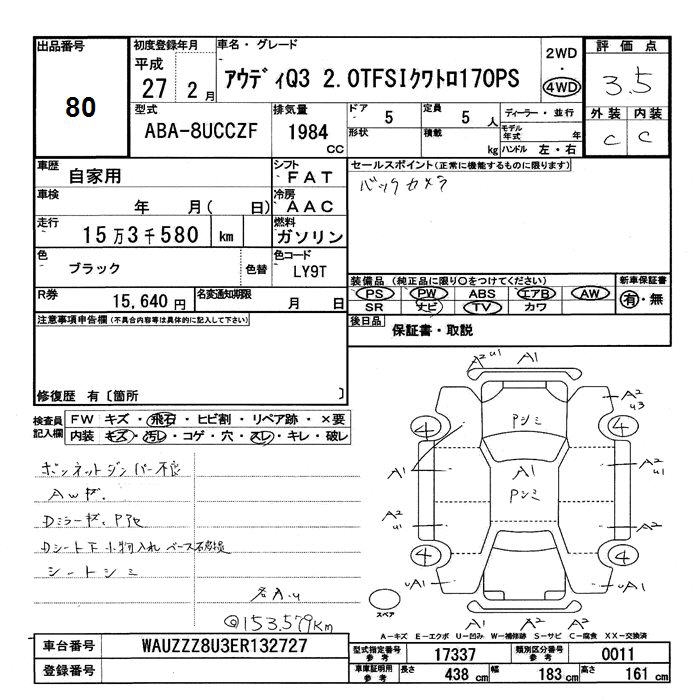 出品番号
80
初度登録年月
平成
27 2月
車名・グレード
アウディQ3 2.0TFSIクワトロ170PS
2WD
・
4WD
評価点
3.5
外装 内装
C C
型式
ABA-8UCCZF
排気量
1984
CC
ドア
5
形状
定員
5 人
積載
kg
ディーラー・並行
モデル年式 年
ハンドル 左・右
車歴
自家用
シフト
FAT
車検
年 月( 日)
冷房
AAC
走行
15万3千580 km
燃料
ガソリン
色
ブラック
色替
色コード
LY9T
R券
15,640円
名変通知期限
月 日
セールスポイント(正常に機能するものに限ります)
バックカメラ
装備品 (純正品に限り○をつけてください)
PS PW ABS エアB AW
SR ナビ TV カワ
新車保証書
有・無
後日品
保証書・取説
注意事項申告欄(不具合内容等は具体的に記入して下さい)
修復歴 有〔箇所 〕
検査員記入欄
FW キズ・飛石・ヒビ割・リペア跡・×要
内装 キズ・汚レ・コゲ・穴・スレ・キレ・破レ
ボンネットダンパー不良
AWガ.
Dシート下小物入れ ベース破損
シートシミ
@153,579Km
A2 u1 A1
A2 u3
4 4
Pシミ
A1 A1 A2 u1
Pシミ
A2 u1 A2
4 4
uA1 uA1
スペア
A1 A2 A1
A-キズ E-エクボ U-凹み W-補修跡 S-サビ C-腐食 XX-交換済
車台番号
WAUZZZ8U3ER132727
登録番号
型式指定番号 参考
17337
類別区分番号 参考
0011
車庫証明用 参考
長さ 438 cm 幅 183 cm 高さ 161 cm